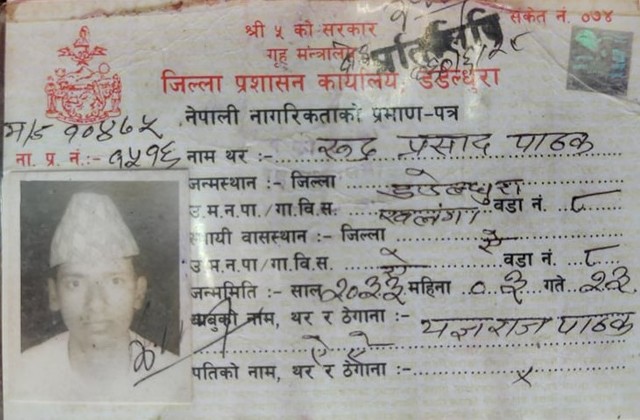 श्री ५ को सरकार
संकेत नं. ०७४
गृह मन्त्रालय
प्रतिलिपि
जिल्ला प्रशासन कार्यालय, डडेल्धुरा
नेपाली नागरिकताको प्रमाण-पत्र
ना. प्र. नं.:- १५१६ नाम थर :- रूद्र प्रसाद पाठक
जन्मस्थान :- जिल्ला डडेल्धुरा
उ.म.न.पा./गा.वि.स. वडा नं. ८
स्थायी वासस्थान :- जिल्ला ऐ
उ.म.न.पा./गा.वि.स. ऐ वडा नं. ८
जन्ममिति :- साल २०३३ महिना ०३ गते २३
बाबुको नाम, थर र ठेगाना :- यज्ञराज पाठक
ऐ ऐ
पतिको नाम, थर र ठेगाना :- x